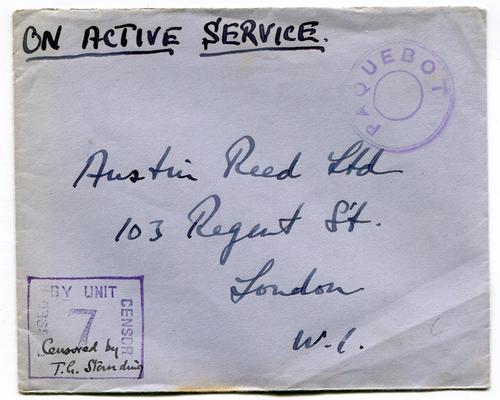 ON ACTIVE SERVICE.
PAQUEBOT
Austin Reed Ltd
103 Regent St.
London
W.1.
BY UNIT
CENSOR
7
Censored by
T.G. Standing